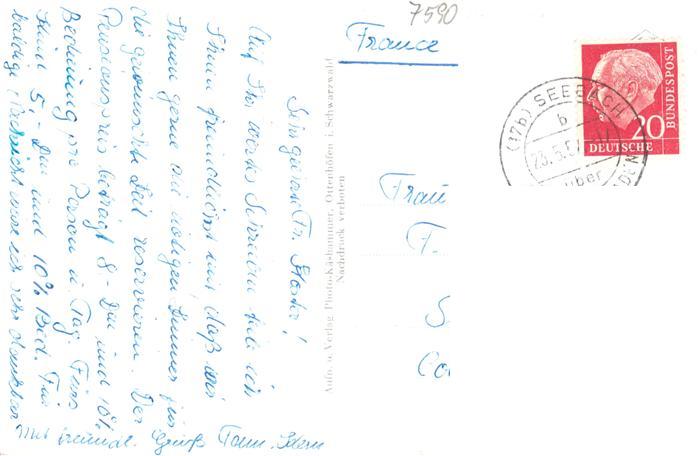 7590
France
Sehr geehrte Fr.
Auf Ihr wertes Schreiben teile ich
Ihnen freundlichst mit, daß wir
Ihnen gerne die nötigen Zimmer für
die gewünschte Zeit reservieren. Der
Pensionspreis beträgt 8.- DM und 10%
Bedienung pro Person u. Tag. Fürs
Kind 5.- DM und 10% Bed. Für
baldige Nachricht wäre ich sehr dankbar
Mit freundl. Gruß Fam.
Aufn. u. Verlag Photo-Käshammer, Ottenhöfen i. Schwarzwald
Nachdruck verboten
Frau
F.
S
Co
(17b) SEEBACH
b
23.5.57
über
DEUTSCHE
BUNDESPOST
20